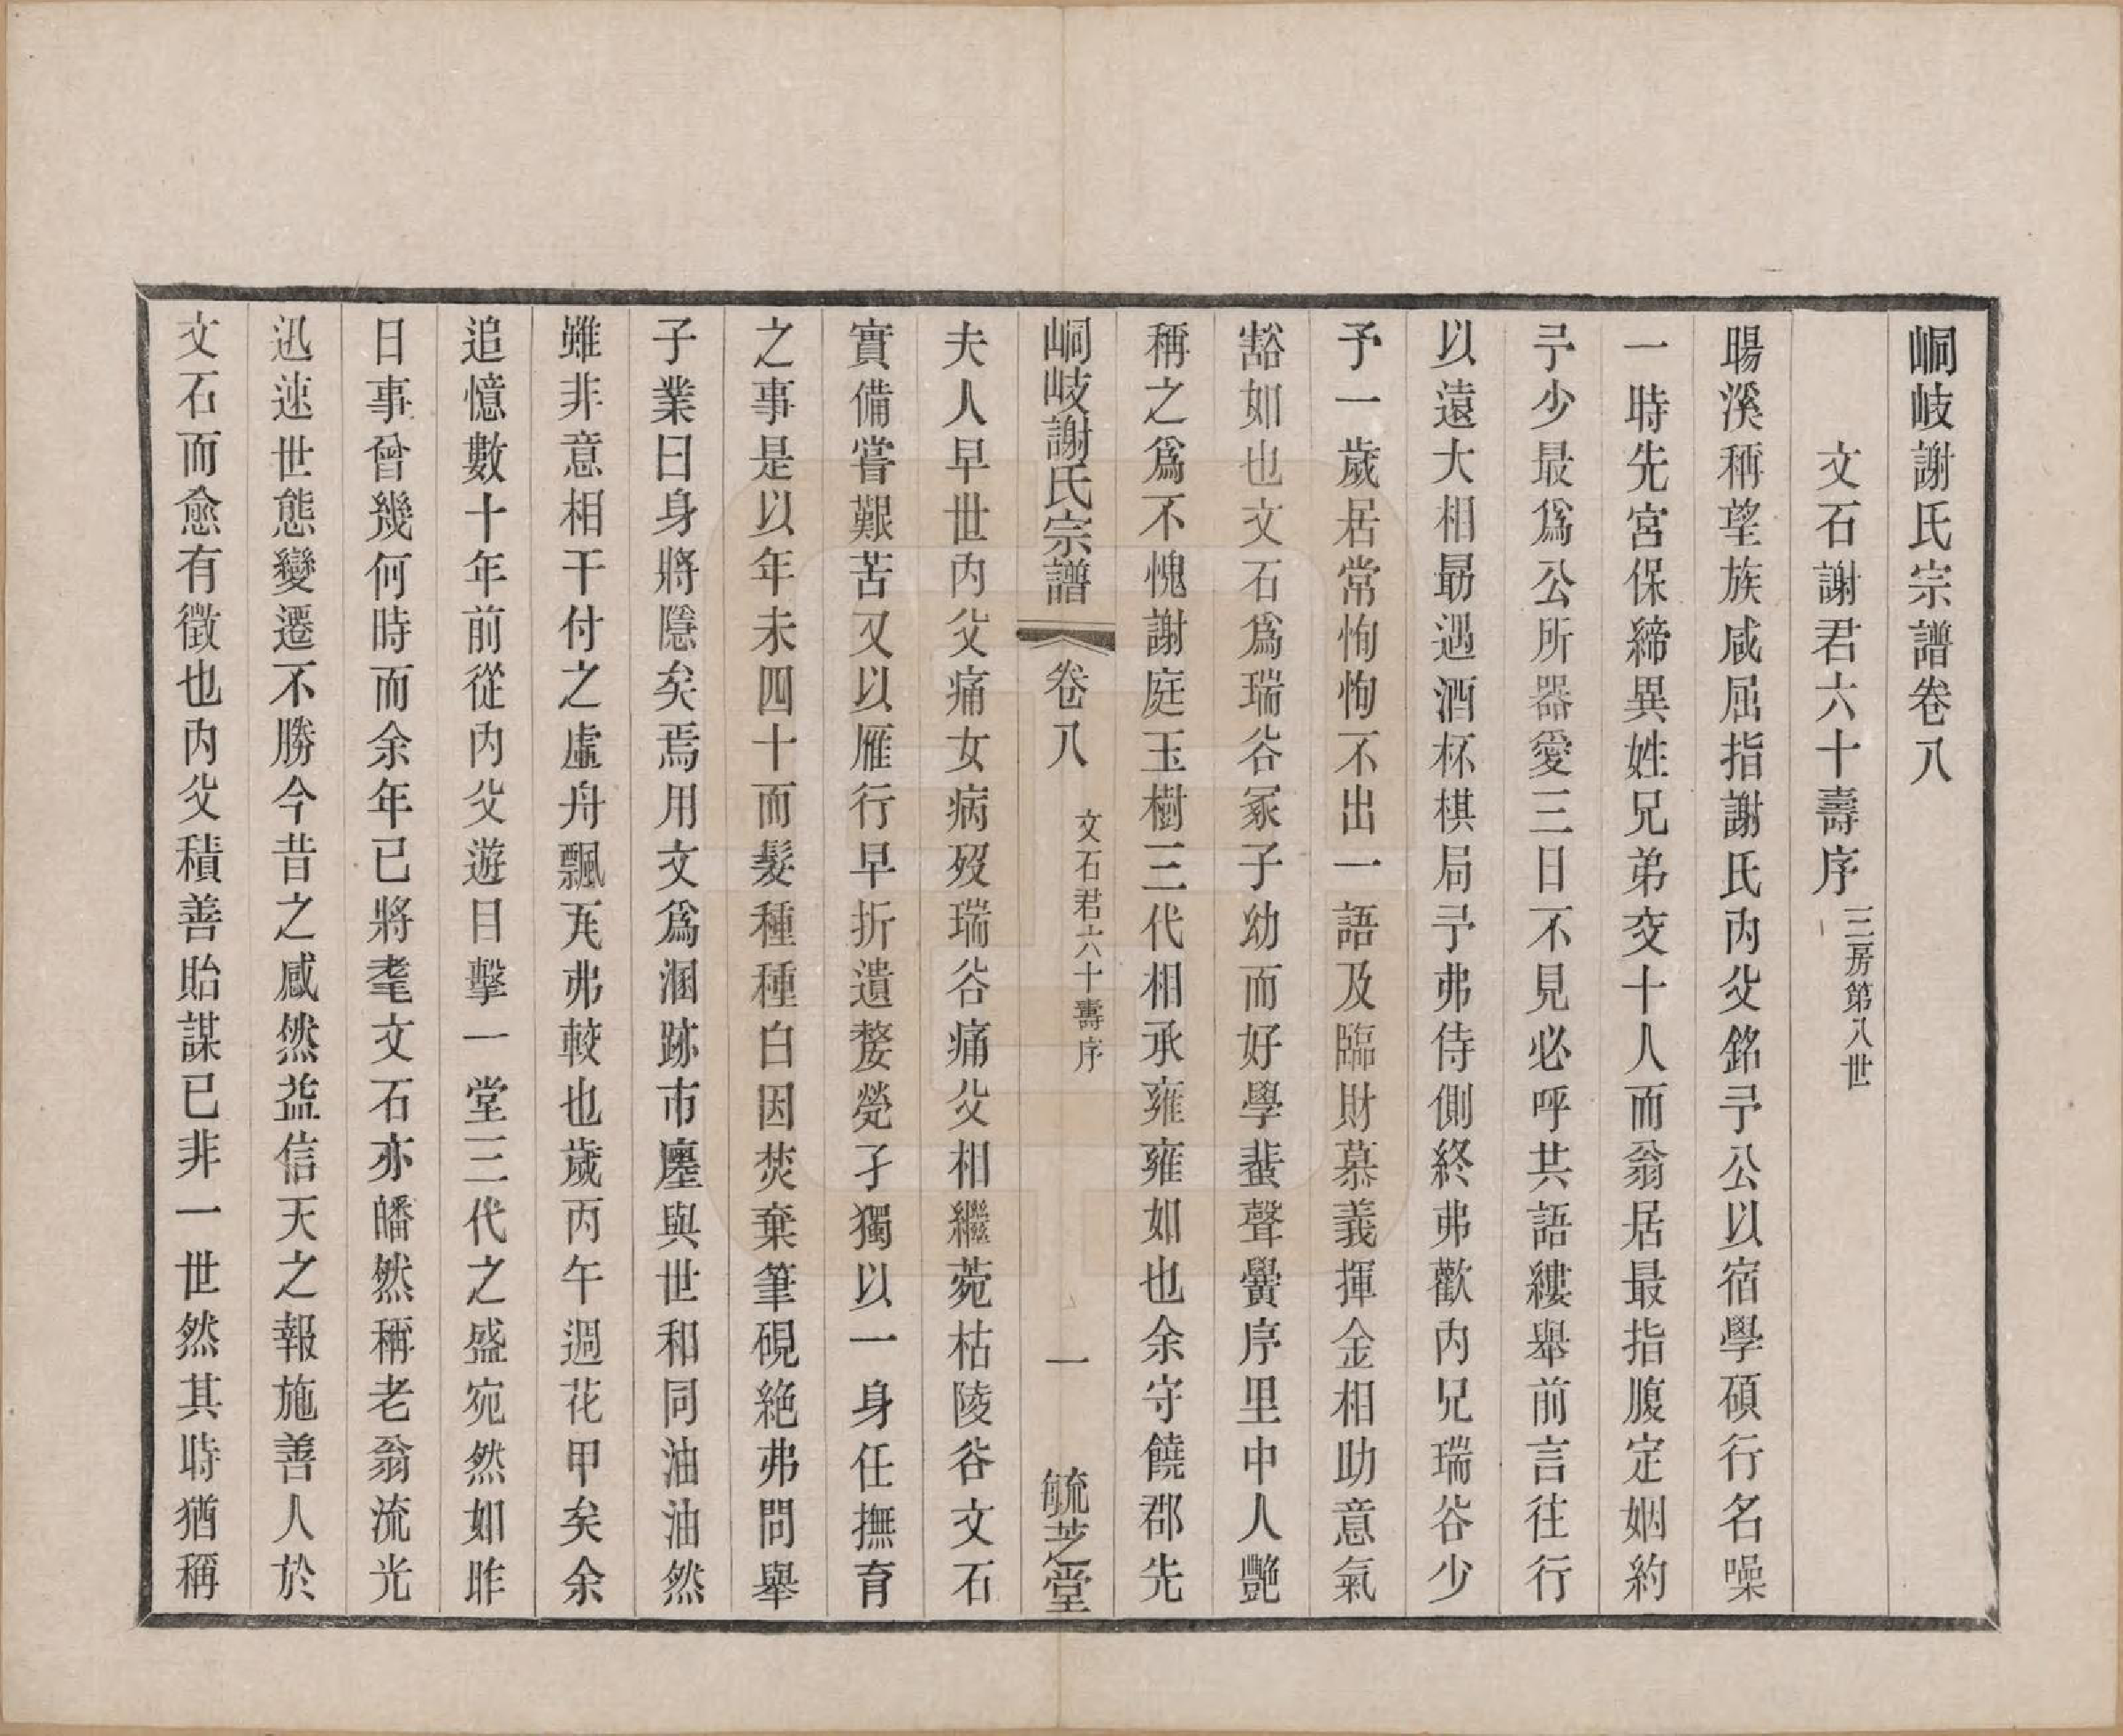 峒岐謝氏宗譜卷八
文石謝君六十壽序 三房第八世
暘溪稱望族咸屈指謝氏內父銘予公以宿學碩行名噪
一時先宮保締異姓兄弟交十人而翁居最指腹定姻約
予少最爲公所器愛三日不見必呼共語縷舉前言往行
以遠大相勗遇酒杯棋局予弗侍側終弗歡內兄瑞谷少
予一歲居常恂恂不出一語及臨財慕義揮金相助意氣
豁如也文石爲瑞谷冢子幼而好學蜚聲黌序里中人艷
稱之爲不愧謝庭玉樹三代相承雍雍如也余守饒郡先
峒岐謝氏宗譜 卷八 文石君六十壽序 一 毓芝堂
夫人早世內父痛女病歿瑞谷痛父相繼菀枯陵谷文石
實備嘗艱苦又以雁行早折遺嫠煢孑獨以一身任撫育
之事是以年未四十而髮種種白因焚棄筆硯絕弗問舉
子業曰身將隱矣焉用文爲溷跡市廛與世和同油油然
雖非意相干付之虛舟飄瓦弗較也歲丙午週花甲矣余
追憶數十年前從內父遊目擊一堂三代之盛宛然如昨
日事曾幾何時而余年已將耄文石亦皤然稱老翁流光
迅速世態變遷不勝今昔之感然益信天之報施善人於
文石而愈有徵也內父積善貽謀已非一世然其時猶稱